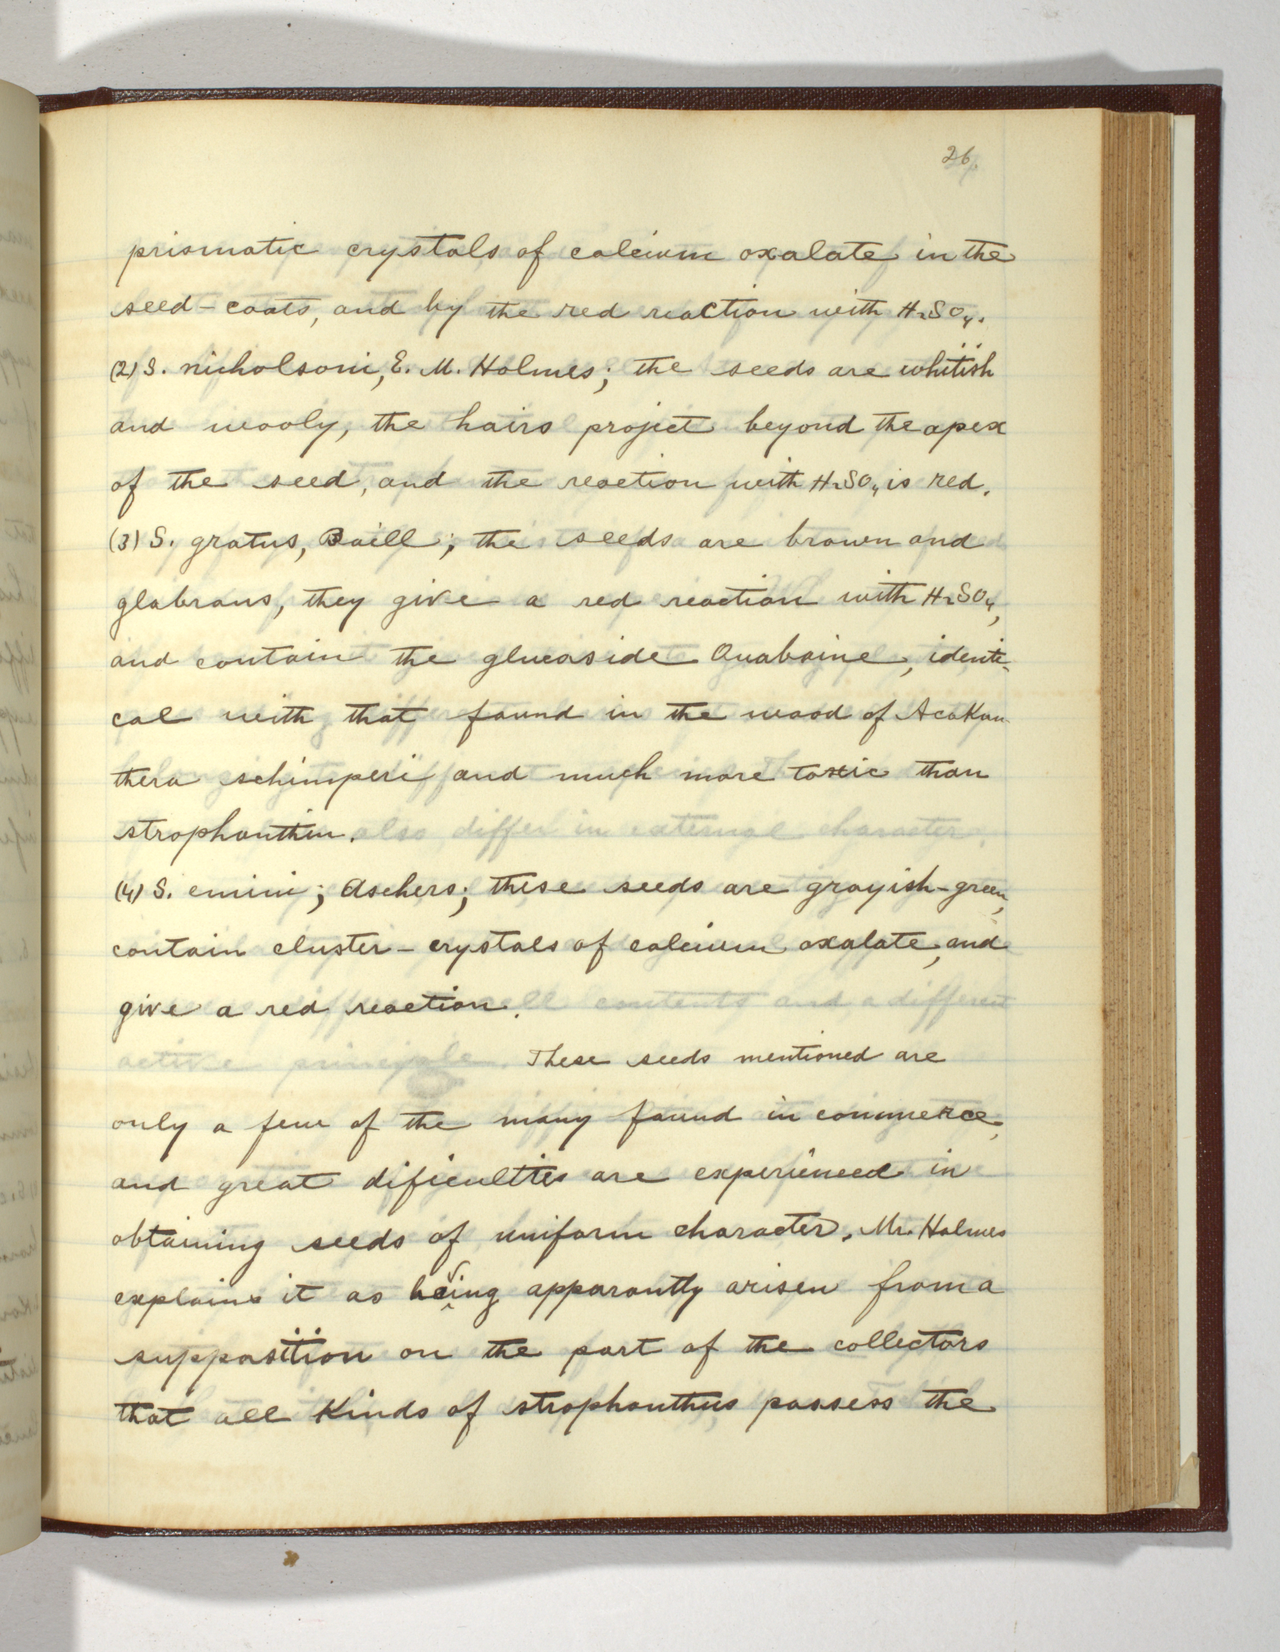 26.
prismatic crystals of calcium oxalate in the
seed-coats, and by the red reaction with H₂SO₄.
(2) S. nicholsoni, E. M. Holmes; the seeds are whitish
and wooly, the hairs project beyond the apex
of the seed, and the reaction with H₂SO₄ is red.
(3) S. gratus, Baill; the seeds are brown and
glabrous, they give a red reaction with H₂SO₄,
and contain the glucoside Ouabaine, identi-
cal with that found in the wood of Acokan-
thera schimperi and much more toxic than
strophanthin.
(4) S. emini; Aschers; these seeds are grayish-green,
contain cluster-crystals of calcium oxalate, and
give a red reaction.
These seeds mentioned are
only a few of the many found in commerce,
and great dificulties are experienced in
obtaining seeds of uniform character. Mr. Holmes
explains it as being apparantly arisen from a
supposition on the part of the collectors
that all kinds of strophanthus possess the